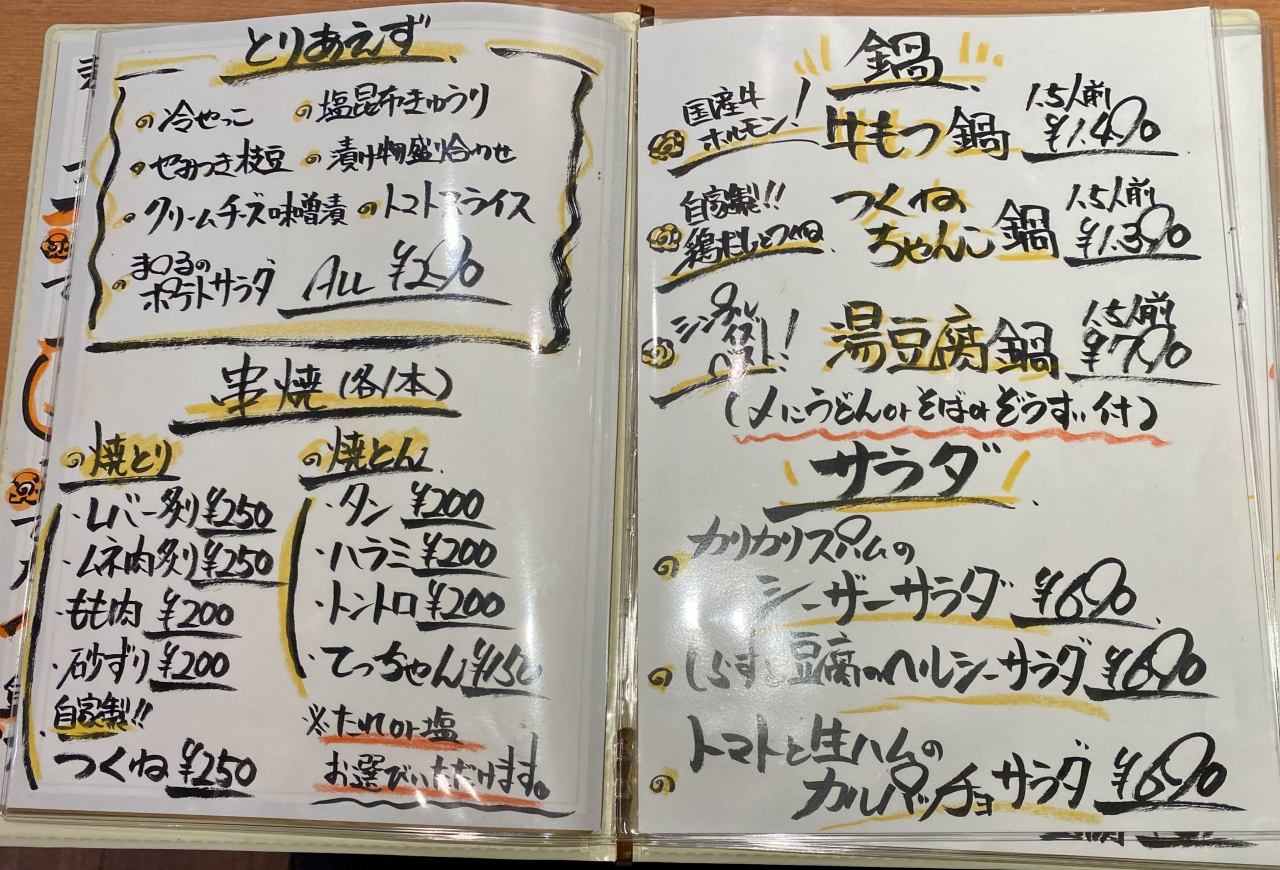 とりあえず
冷やっこ
塩昆布きゅうり
やみつき枝豆
漬け物盛り合わせ
クリームチーズ味噌漬
トマトスライス
まつるの
ポテトサラダ
ALL ¥290
串焼(各1本)
焼とり
・レバー炙り ¥250
・ムネ肉炙り ¥250
・もも肉 ¥200
・砂ずり ¥200
自家製!!
つくね ¥250
焼とん
・タン ¥200
・ハラミ ¥200
・トントロ ¥200
・てっちゃん ¥150
※たれor塩
お選びいただけます。
鍋
国産牛
ホルモン!
牛もつ鍋
1.5人前
¥1.490
自家製!!
鶏だしとつくね
つくね
ちゃんこ鍋
1.5人前
¥1.390
シンプル
イズ
ベスト!
湯豆腐鍋
1.5人前
¥790
(〆にうどんorそばorぞうすい付)
サラダ
カリカリスパムの
シーザーサラダ ¥690
しらすと豆腐のヘルシーサラダ ¥690
トマトと生ハムの
カルパッチョサラダ ¥690